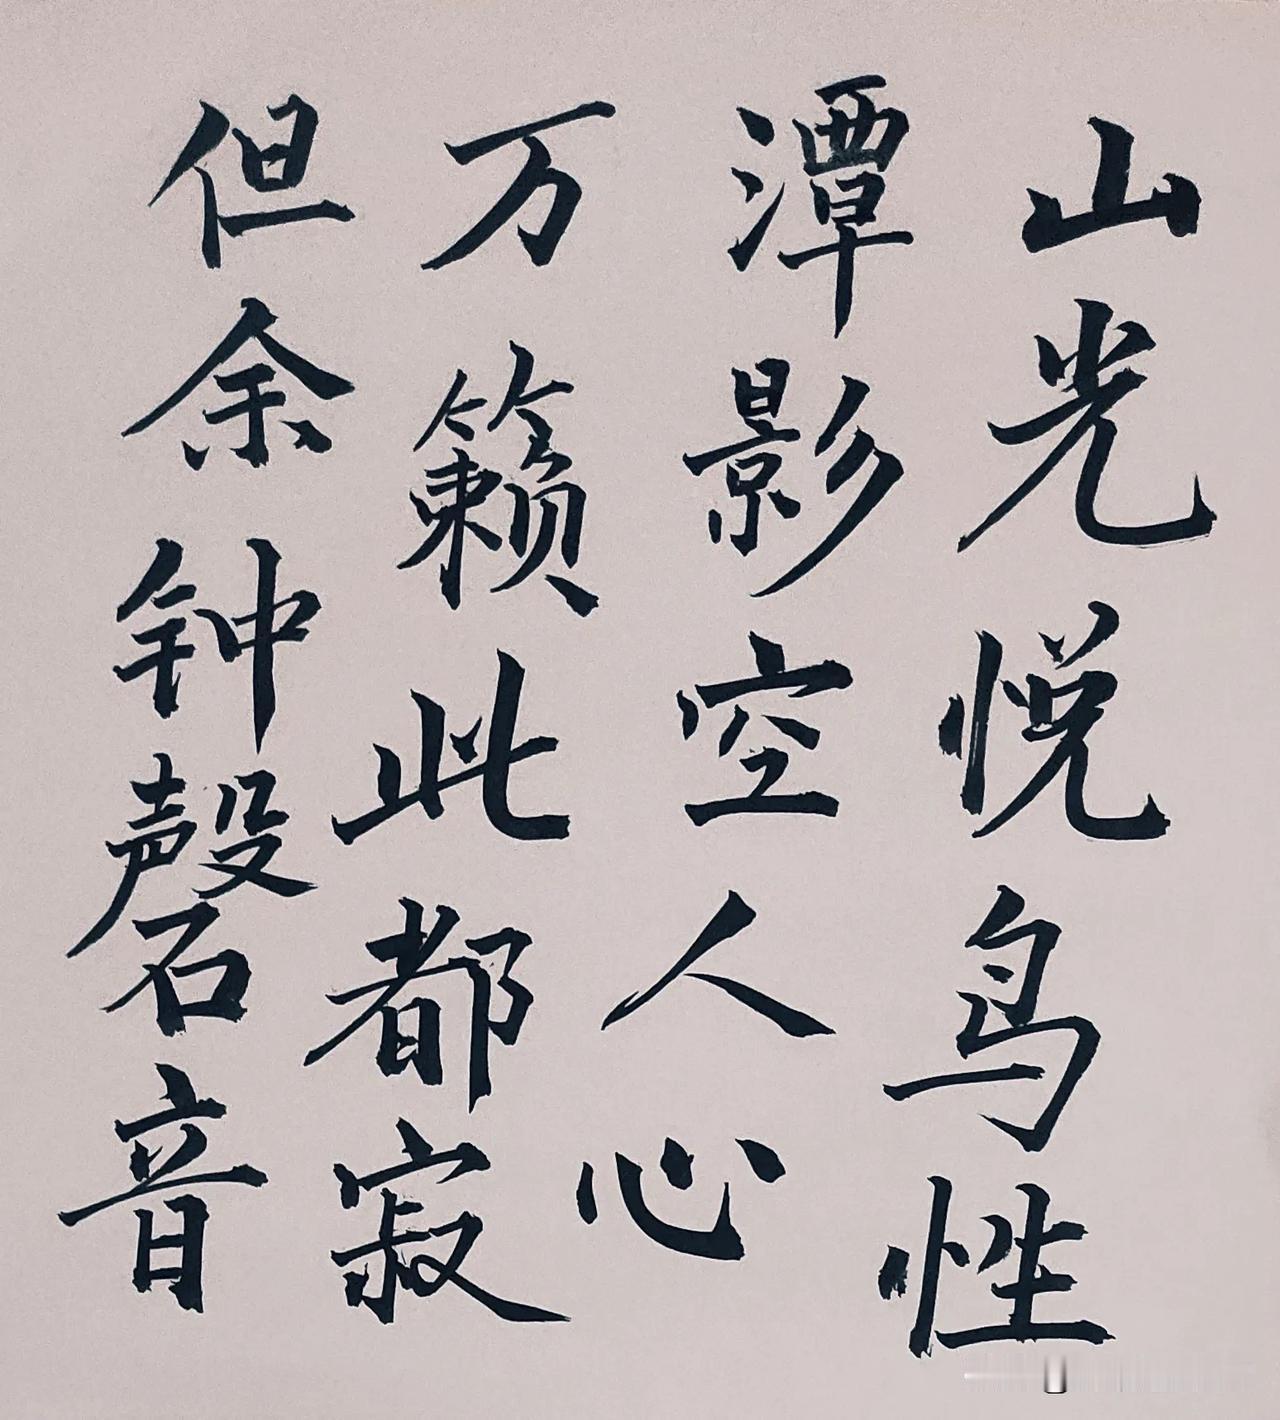 山光悦鸟性
潭影空人心
万籁此都寂
但余钟磬音